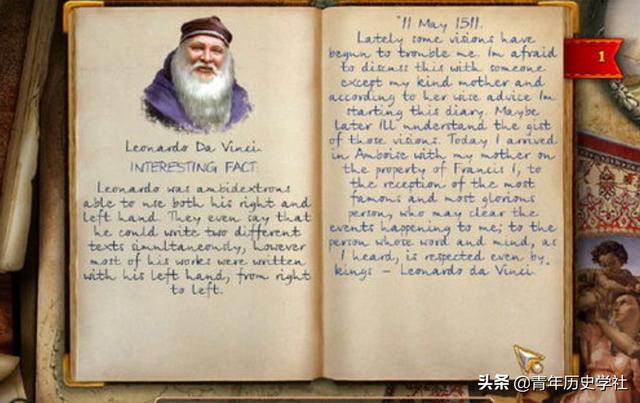 Leonardo Da Vinci.
INTERESTING FACT:
Leonardo was ambidextrous
able to use both his right and
left hand. They even say that
he could write two different
texts simultaneously, however
most of his works were written
with his left hand, from right
to left.
"11 May 1511.
Lately some visions have
begun to trouble me. Im afraid
to discuss this with someone
except my kind mother and
according to her wise advice Im
starting this diary. Maybe
later Ill understand the gist
of those visions. Today I arrived
in Amboise with my mother on
the property of Francis I, to
the reception of the most
famous and most glorious
person, who may clear the
events happening to me; to the
person whose word and mind, as
I heard, is respected even by
kings - Leonardo da Vinci."
1
头条 @青年历史学社